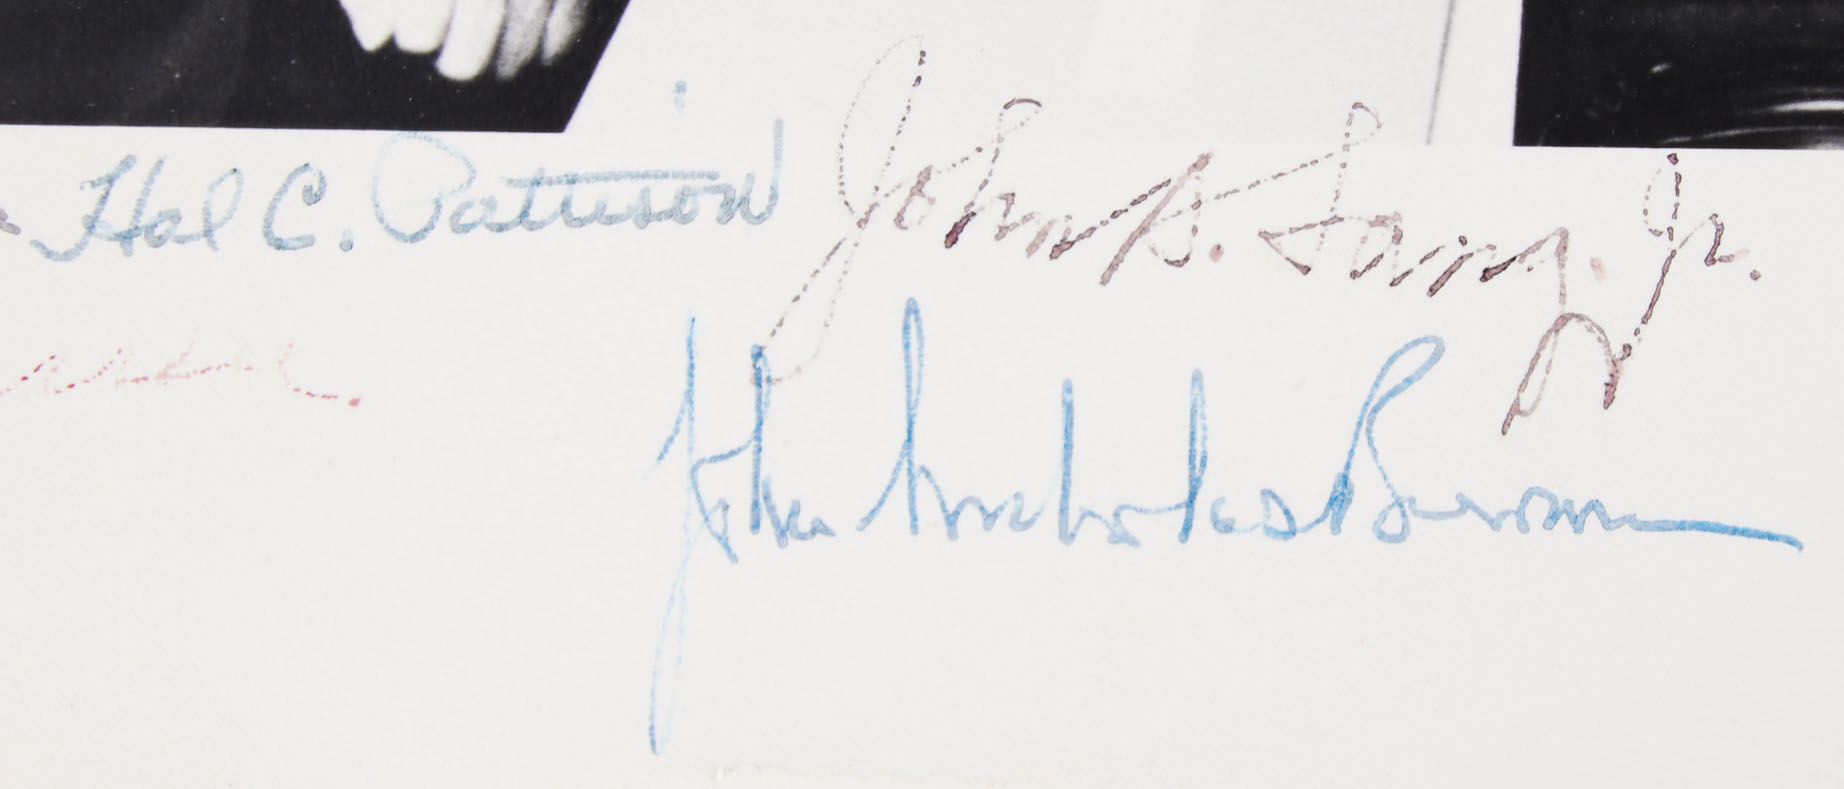 Hal C. Pattison John S. Long, Jr.
John Nicholas Brown